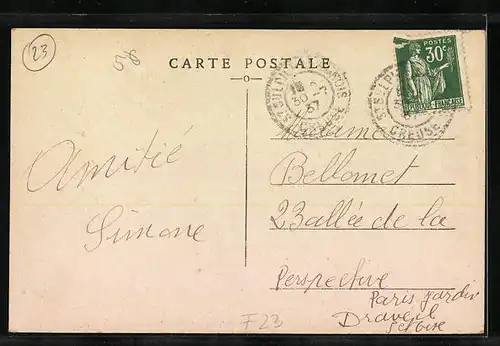 23
CARTE POSTALE
POSTES
30c
CREUSE
30
37
CREUSE
Madame
Bellomet
23 allée de la
Perspective
Paris Jardin
Draveil
S et oise
Amitié
Simone
F23